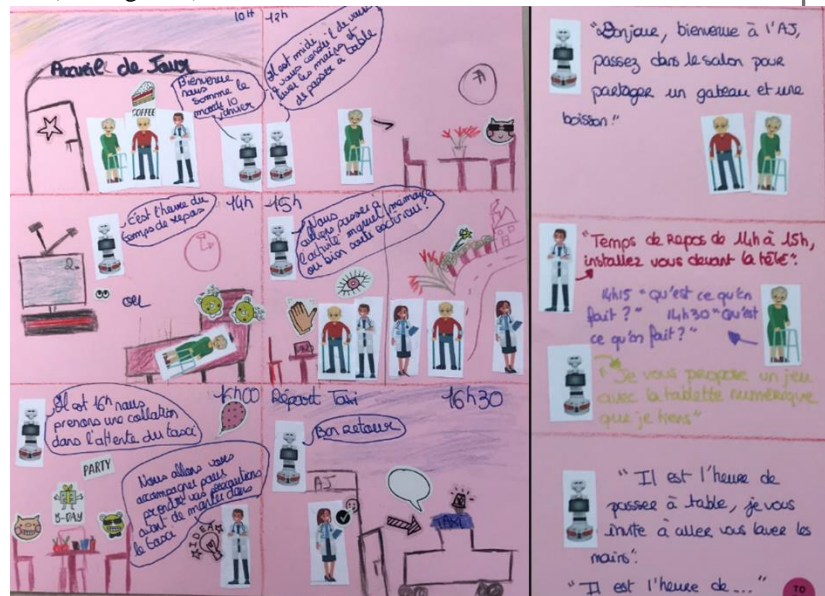 10H
Accueil de Jour
Bienvenue
nous
somme le
mardi 10
février
COFFEE
12h
Il est midi
je vous conseil de vous
laver les mains et
de passer à table
14h
C'est l'heure du
temps de repos
2.
ou
15h
Nous
allons passer à
l'activité manuel, promenade
ou bien sortie extérieur?
16h00
Il est 16h nous
prenons une collation
dans l'attente du taxi
PARTY
B-DAY
Nous allons vous
accompagner pour
prendre vos précautions
avant de monter dans
le taxi
IDEA
Départ Taxi
16h30
Bon retour
AJ
"Bonjour, bienvenue à l'AJ,
passez dans le salon pour
partager un gateau et une
boisson."
"Temps de Repos de 14h à 15h,
installez vous devant la télé".
14h15 "Qu'est ce qu'on
fait?" 14h30 "Qu'est
ce qu'on fait?"
"Je vous propose un jeu
avec la tablette numérique
que je tiens"
"Il est l'heure de
passer à table, je vous
invite à aller vous laver les
mains".
"Il est l'heure de..."
TO